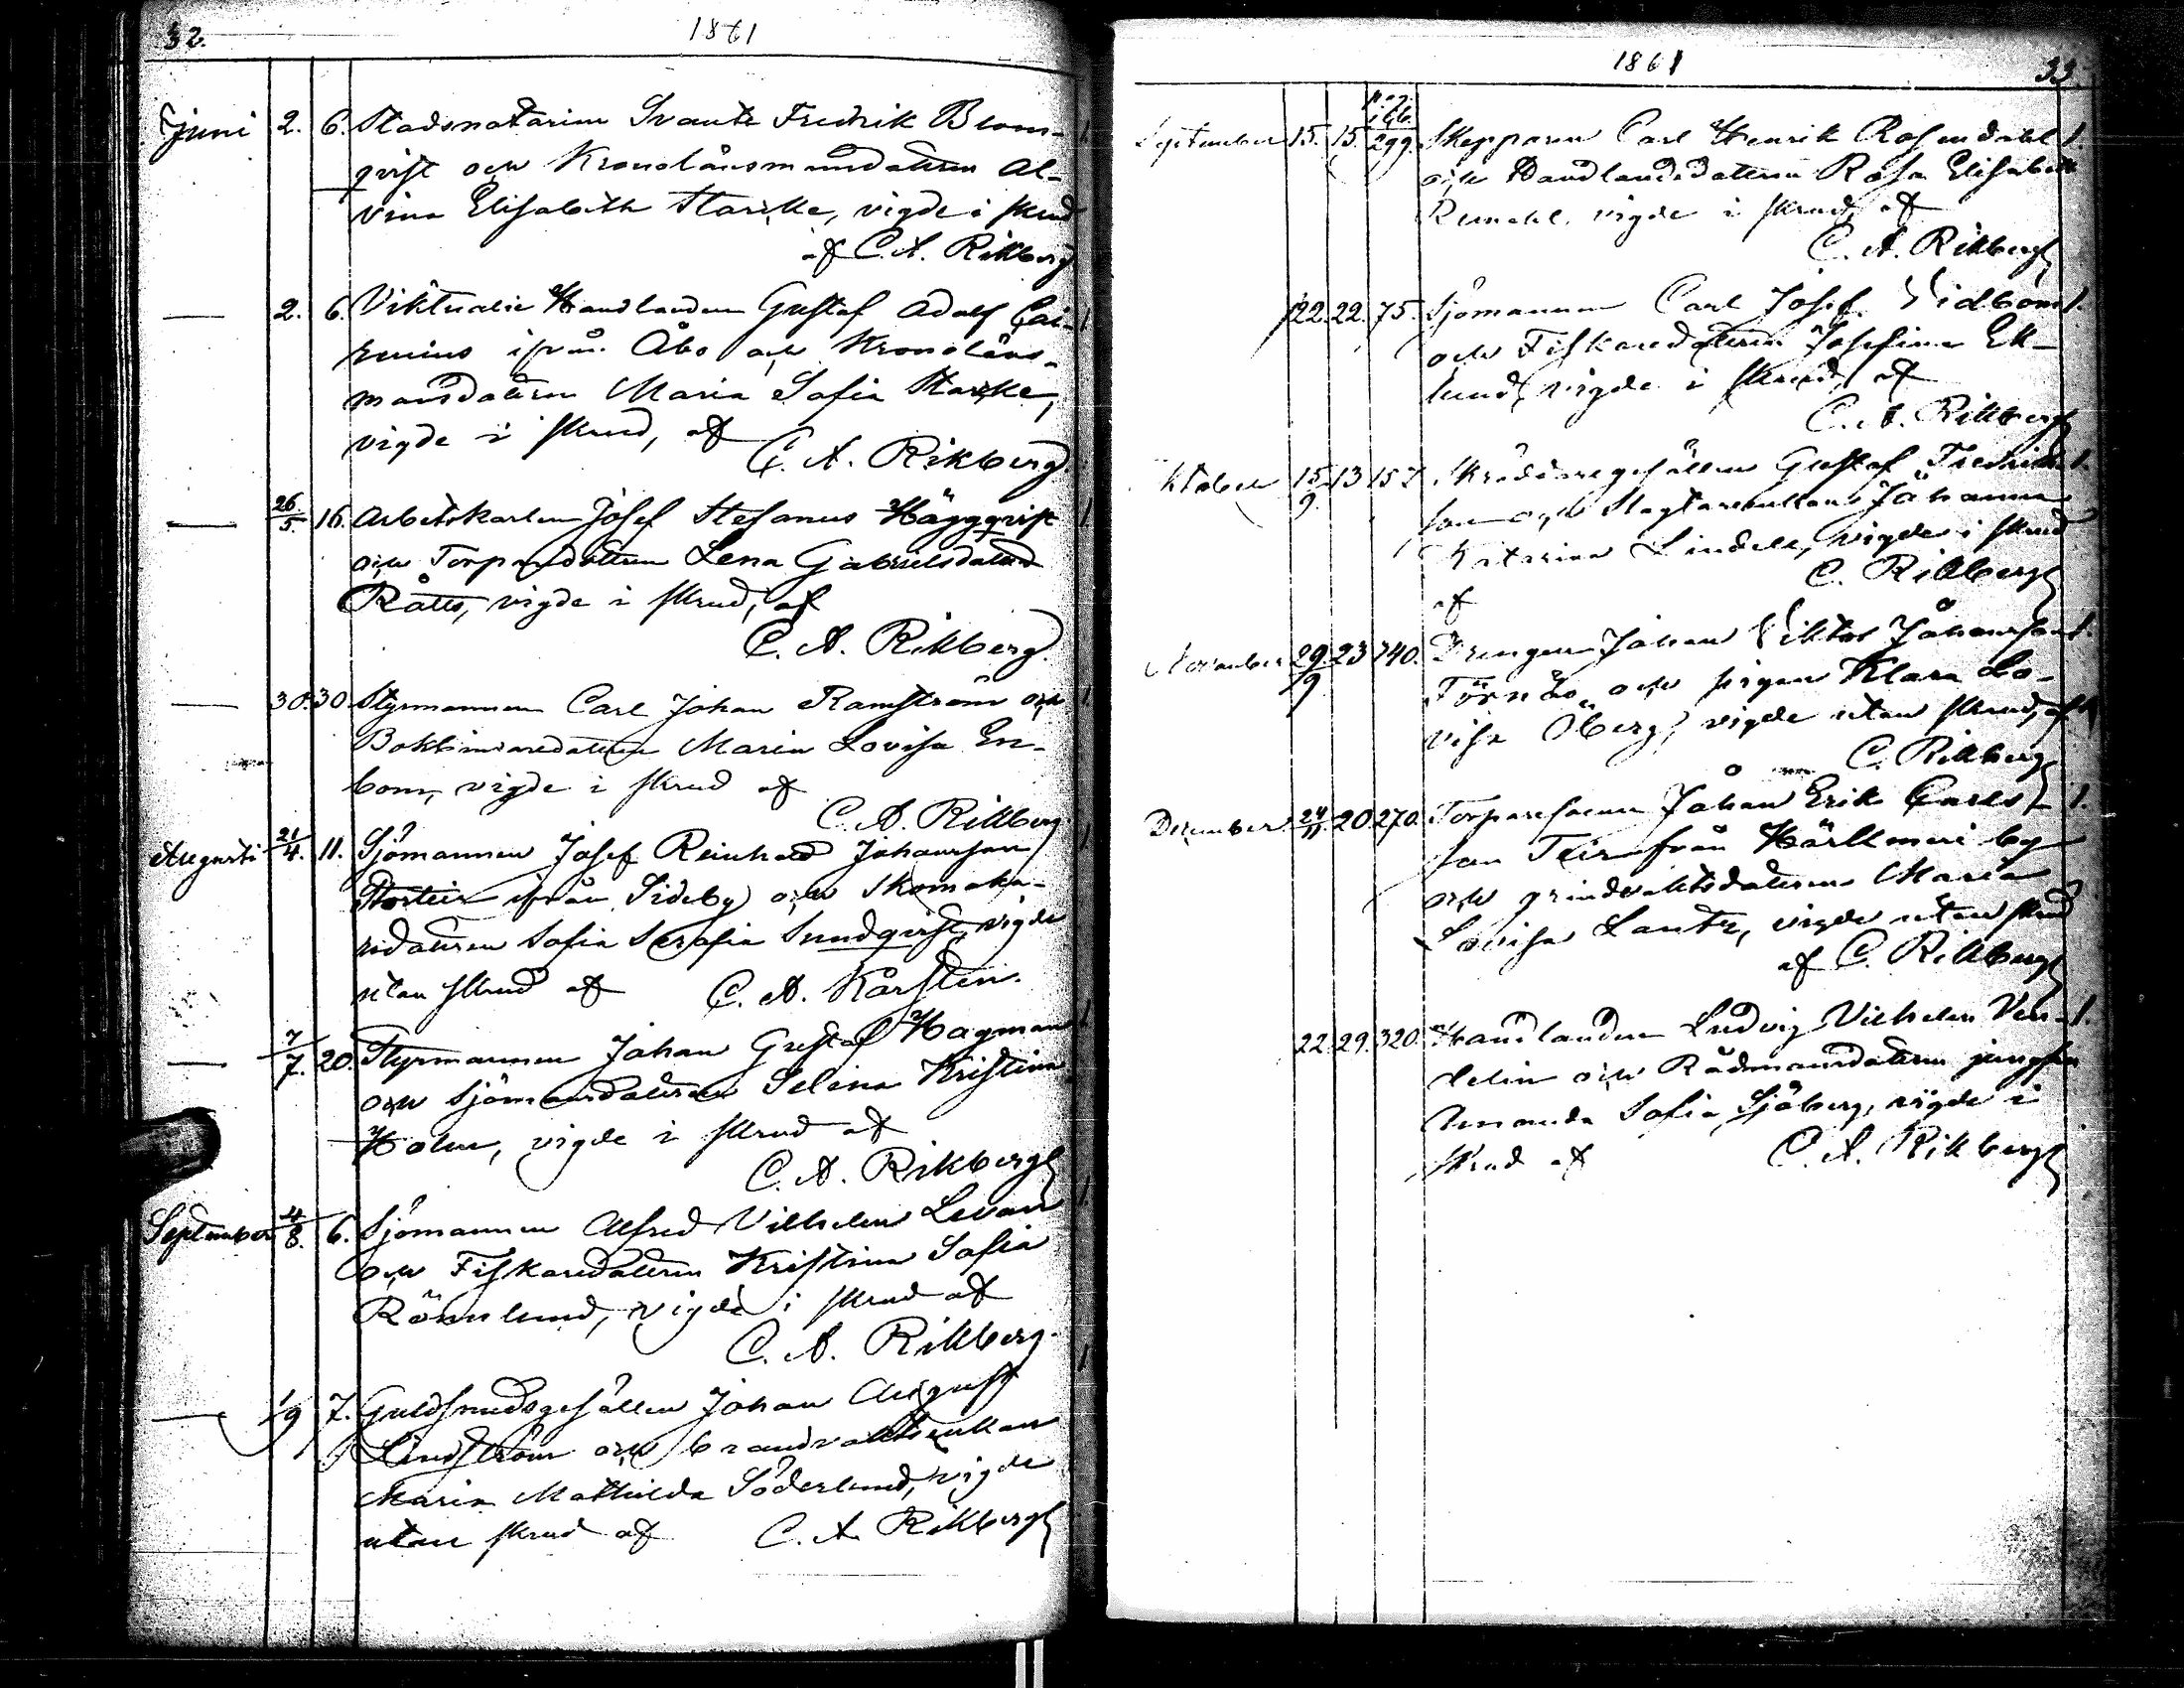 32.
1861
Juni 2. 6. Stadsnotarien Svante Fredrik Blom-
qvist och Kronolänsmansdottern Al-
vina Elisabeth Starcke, vigde i skrud
af C. A. Rikberg
— 2. 6. Viktualie Handlanden Gustaf Adolf
ifrån Åbo och Kronoläns-
mansdottern Maria Sofia Starcke,
vigde i skrud, af
C. A. Rikberg.
— 26/5 16. Arbetskarlen Josef Stefanus Häggqvist
och Torparedottern Lena Gabrielsdotter
Råtts, vigde i skrud, af
C. A. Rikberg.
— 30. 30 Styrmannen Carl Johan Ramström och
Bokbindaredottern Maria Lovisa En-
bom, vigde i skrud af
C. A. Rikberg
Augusti 21/4. 11. Sjömannen Josef Reinhard Johansson
Storteir ifrån Sideby och Skomaka-
redottern Sofia Serafia Sundqvist, vigde
utan skrud af C. A. Karsten.
— 7/7. 20. Styrmannen Johan Gustaf Hagman
och Sjömansdottern Selina Kristina
Holm, vigde i skrud af
C. A. Rikberg
September 4/8. 6. Sjömannen Alfred Vilhelm Levan
och Fiskaredottern Kristina Sofia
Rönnlund, vigde i skrud af
C. A. Rikberg.
— 1/9 7. Guldsmedsgesällen Johan August
Lindström och brandvaktsenkan
Maria Mathilda Söderlund, vigde
utan skrud af C. A. Rikberg
1861
33.
September 15. 15. 299. Skepparen Carl Henrik Rosendahl 1.
och Handlandedottern Rosa Elisabeth
vigde i skrud af
C. A. Rikberg
22. 22. 75. Sjömannen Carl Josef Vidbom 1.
och Fiskaredottern Josefina Ek-
lund, vigde i skrud, af
C. A. Rikberg
Oktober 15/9. 13 157. Skräddaregesällen Gustaf Fredriks- 1.
son och Slagtareenkan Johanna
Katarina Lindell, vigde i skrud
af C. Rikberg
November 29/9 23 740. Drengen Johan Viktor Johansson 1.
Törnäs och pigan Klara Lo-
visa Öberg, vigde utan skrud, af
C. Rikberg
December 24/11 20. 270. Torparesonen Johan Erik Carls- 1.
son Teir från Härkmeri by
och grindvaktsdottern Maria
Lovisa Lantz, vigde utan skrud
af C. Rikberg
22. 29. 320. Handlanden Ludvig Vilhelm Ven- 1.
delin och Rådmansdottern jungfru
Amanda Sofia Sjöberg, vigde i
skrud af C. A. Rikberg